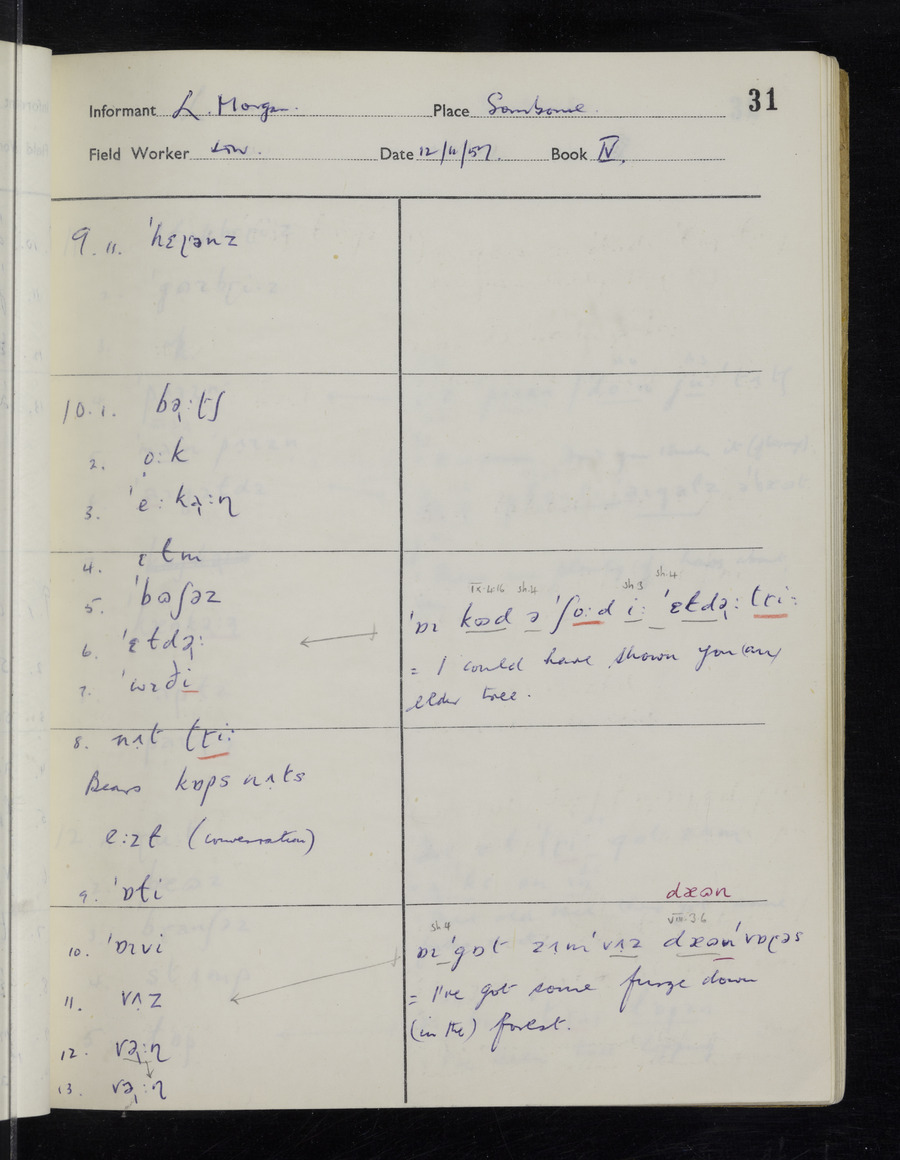 31
Informant L. Morgan. Place Sombourne.
Field Worker Date 12/11/57. Book IV.
9. 11. ˈhɛɽənz
10. 1. bə̢:tʃ
2. ọ:k
3. ˈe:kə̢:ɳ
4. ɛłm
5. ˈbɷʃəz
6. ˈɛłdə̢:
7. ˈwɪði
8. nʌt tɽi:
Bears kɒps nʌts
e:zł (conversation)
9. ˈɒłi
10. ˈɒɪvi
11. vʌz
12. və̢:ɳ
13. və̢:ɳ
IX.4.16 sh.4 sh.3 sh.4
ˈɒɪ kɷd ə ˈʃo:d i: ˈɛłdə̢: tɽi:
= I could have shown you (an)
elder tree.
dæɷn
sh.4 VIII.3.6
ɒɪ ˈgɒt zʌm ˈvʌz dæɷn ˈvɒɽəs
= I've got some furze down
(in the) forest.